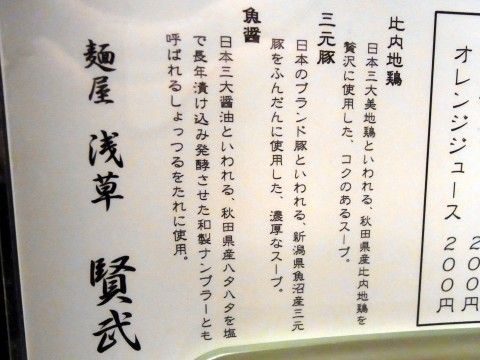 オレンジジュース 200円
200円
比内地鶏
日本三大美地鶏といわれる、秋田県産比内地鶏を
贅沢に使用した、コクのあるスープ。
三元豚
日本のブランド豚といわれる、新潟県魚沼産三元
豚をふんだんに使用した、濃厚なスープ。
魚醤
日本三大醤油といわれる、秋田県産ハタハタを塩
で長年漬け込み発酵させた和製ナンプラーとも
呼ばれるしょっつるをたれに使用。
麺屋 浅草 賢武